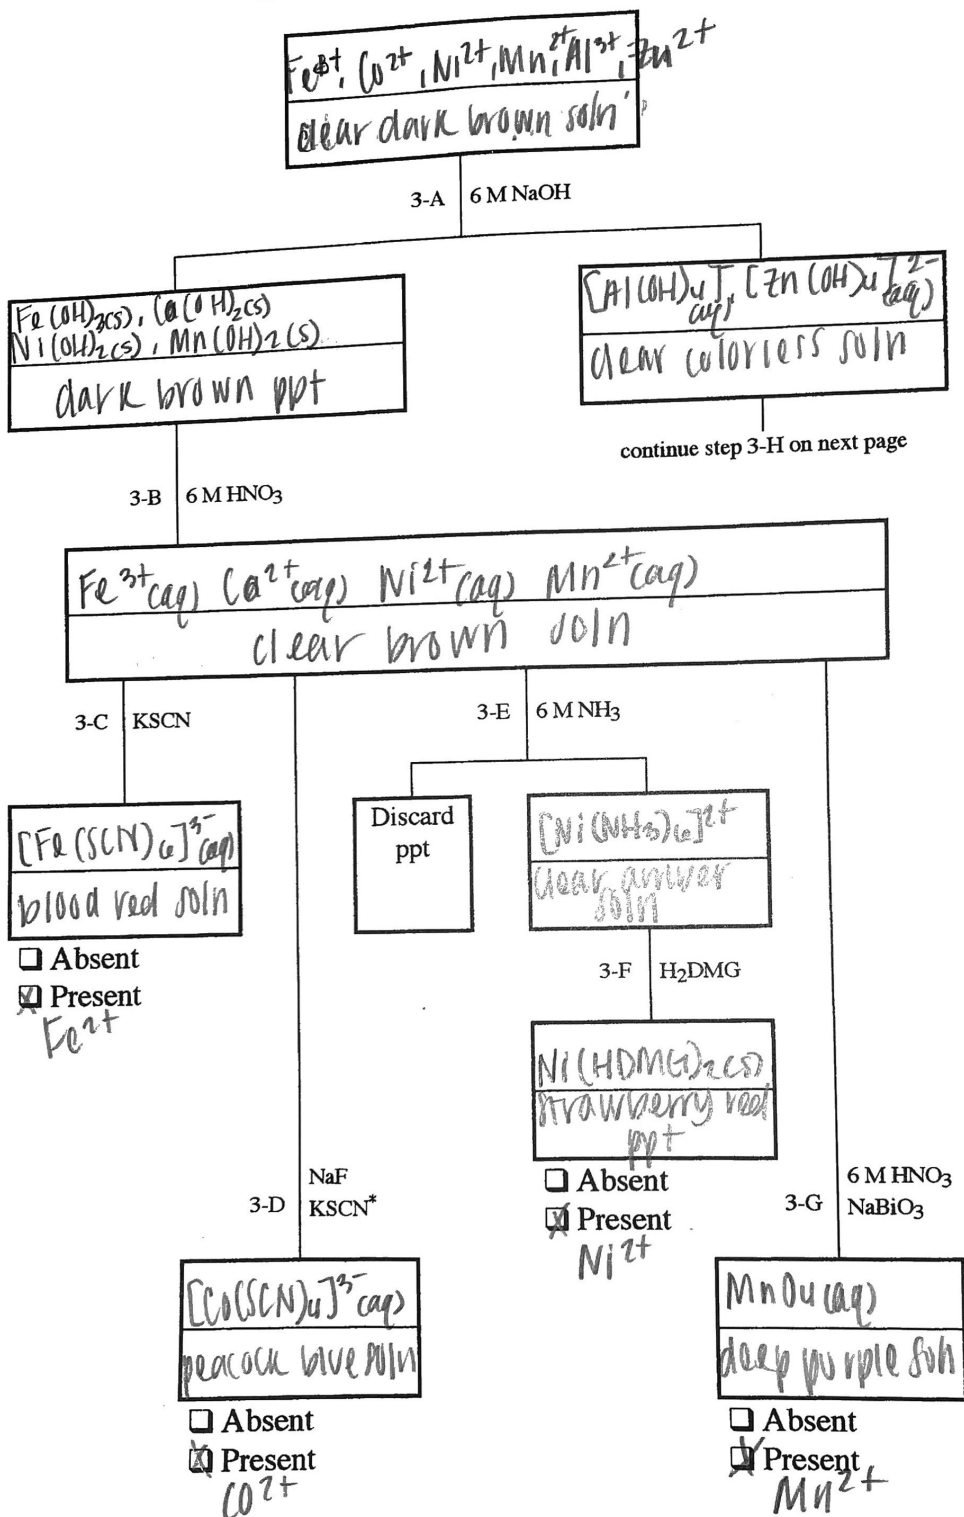 Fe3+, Co2+, Ni2+, Mn2+, Al3+, Zn2+
clear dark brown soln
3-A 6 M NaOH
Fe(OH)3(s), Co(OH)2(s)
Ni(OH)2(s), Mn(OH)2(s)
dark brown ppt
[Al(OH)4]-, [Zn(OH)4]2-
(aq) (aq)
clear colorless soln
continue step 3-H on next page
3-B 6 M HNO3
Fe3+(aq) Co2+(aq) Ni2+(aq) Mn2+(aq)
clear brown soln
3-C KSCN
3-E 6 M NH3
[Fe(SCN)6]3-(aq)
blood red soln
Absent
Present
Fe2+
Discard
ppt
[Ni(NH3)6]2+
clear
soln
3-F H2DMG
Ni(HDMG)2(s)
strawberry red
ppt
Absent
Present
Ni2+
3-D NaF
KSCN*
3-G 6 M HNO3
NaBiO3
[Co(SCN)4]3-(aq)
peacock blue soln
Absent
Present
Co2+
MnO4(aq)
deep purple soln
Absent
Present
Mn2+